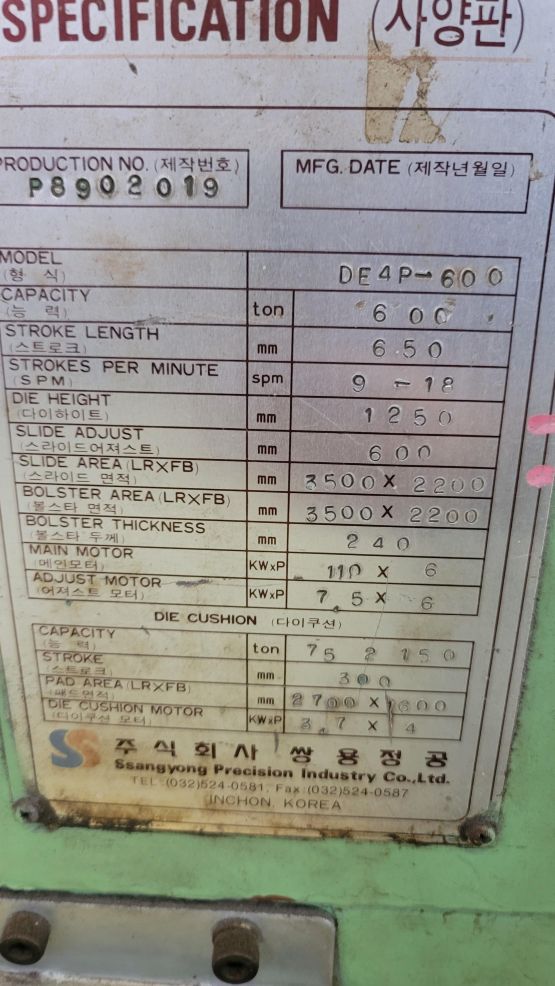 SPECIFICATION (사양판)
PRODUCTION NO. (제작번호)
P8902019
MFG. DATE (제작년월일)
MODEL DE4P-600
(형 식)
CAPACITY ton 600
(능 력)
STROKE LENGTH mm 650
(스트로크)
STROKES PER MINUTE spm 9-18
(SPM)
DIE HEIGHT mm 1250
(다이하이트)
SLIDE ADJUST mm 600
(스라이드어져스트)
SLIDE AREA (LR×FB) mm 3500 × 2200
(스라이드 면적)
BOLSTER AREA (LR×FB) mm 3500 × 2200
(볼스타 면적)
BOLSTER THICKNESS mm 240
(볼스타 두께)
MAIN MOTOR KW×P 110 × 6
(메인모터)
ADJUST MOTOR KW×P 7.5 × 6
(어져스트 모터)
DIE CUSHION (다이쿠션)
CAPACITY ton 75 2 150
(능 력)
STROKE mm 300
(스트로크)
PAD AREA (LR×FB) mm 2700 × 1600
(패드면적)
DIE CUSHION MOTOR KW×P 3.7 × 4
(다이쿠션 모터)
주식회사 쌍용정공
Ssangyong Precision Industry Co.,Ltd.
TEL (032)524-0581, Fax (032)524-0587
INCHON, KOREA